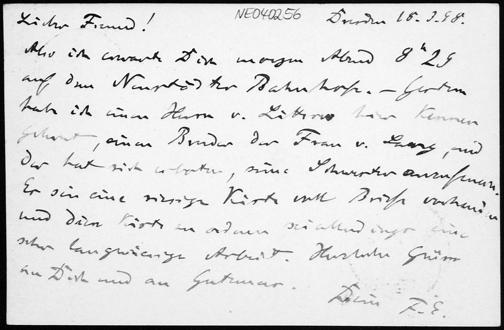 NE040256
Lieber Freund! Dresden 18.3.98.
Also ich erwarte Dich morgen Abend 8h29
auf dem Neustädter Bahnhofe. – Gestern
habe ich einen Herrn v. Littrow hier kennen
gelernt, einen Bruder der Frau v. Lang, und
der hat sich erboten, seine Schwester
Es sei eine riesige Kiste voll Briefe vorhanden
und diese Kiste zu ordnen sei allerdings eine
sehr langwierige Arbeit. Herzliche Grüsse
an Dich und an Gutmar.
Dein F. E.